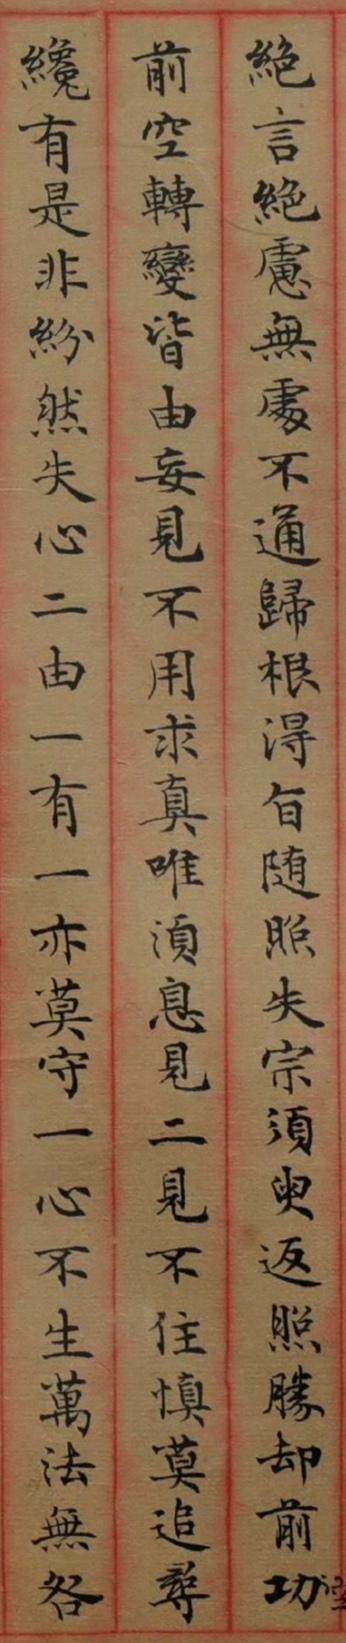 絶言絶慮無處不通歸根得旨随照失宗須臾返照勝却前功
前空轉變皆由妄見不用求真唯須息見二見不住慎莫追尋
纔有是非紛然失心二由一有一亦莫守一心不生萬法無咎